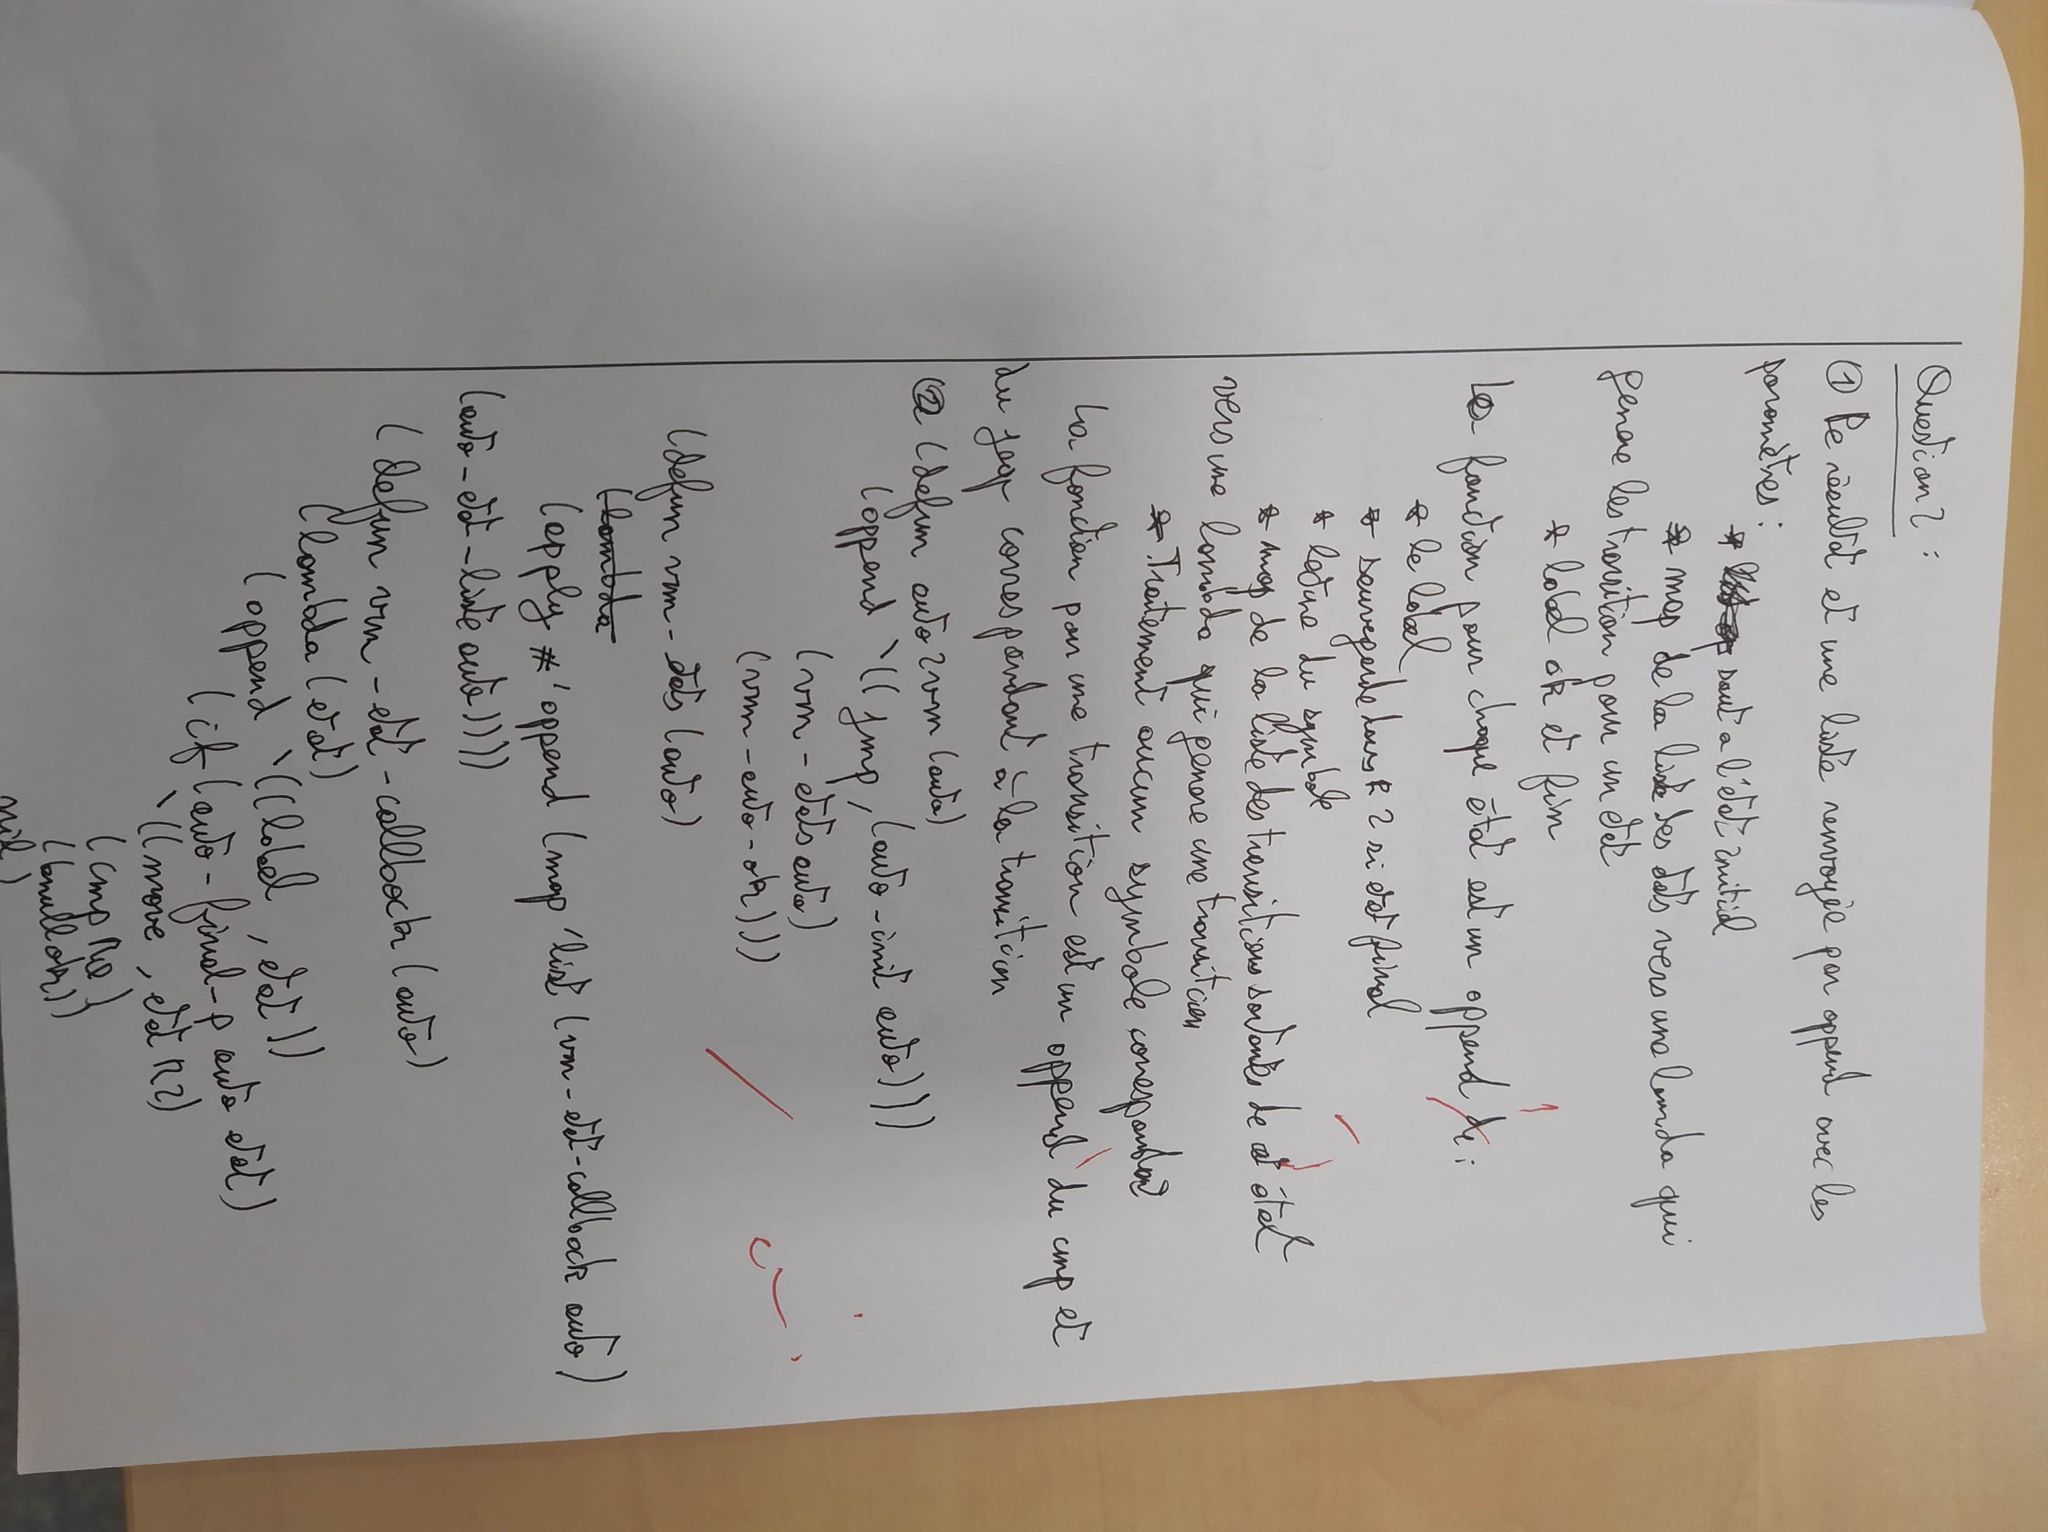 Question 2 :
① Le résultat et une liste renvoyée par append avec les
paramètres :
* saut a l'état initial
* map de la liste des états vers une lamda qui
genere les transition pour un état
* label ok et fin
La fonction pour chaque état est un append de :
* le label
* sauvegarde dans R2 si état final
* lecture du symbole
* map de la liste des transitions sortantes de cet état
vers une lambda qui genere une transition
* Traitement aucun symbole correspondant
La fonction pour une transition est un append du cmp et
du jeq correspondant à la transition
② (defun auto2vm (auto)
(append `((jmp ,(auto-init auto)))
(vm-etats auto)
(vm-auto-ok)))
(defun vm-etats (auto)
(lambda
(apply #'append (map 'list (vm-etat-callback auto)
(auto-etat-liste auto))))
(defun vm-etat-callback (auto)
(lambda (etat)
(append `((label ,etat))
(if (auto-final-p auto etat)
`((move ,etat R2)
(cmp R0)
(bnull ok))
nil)